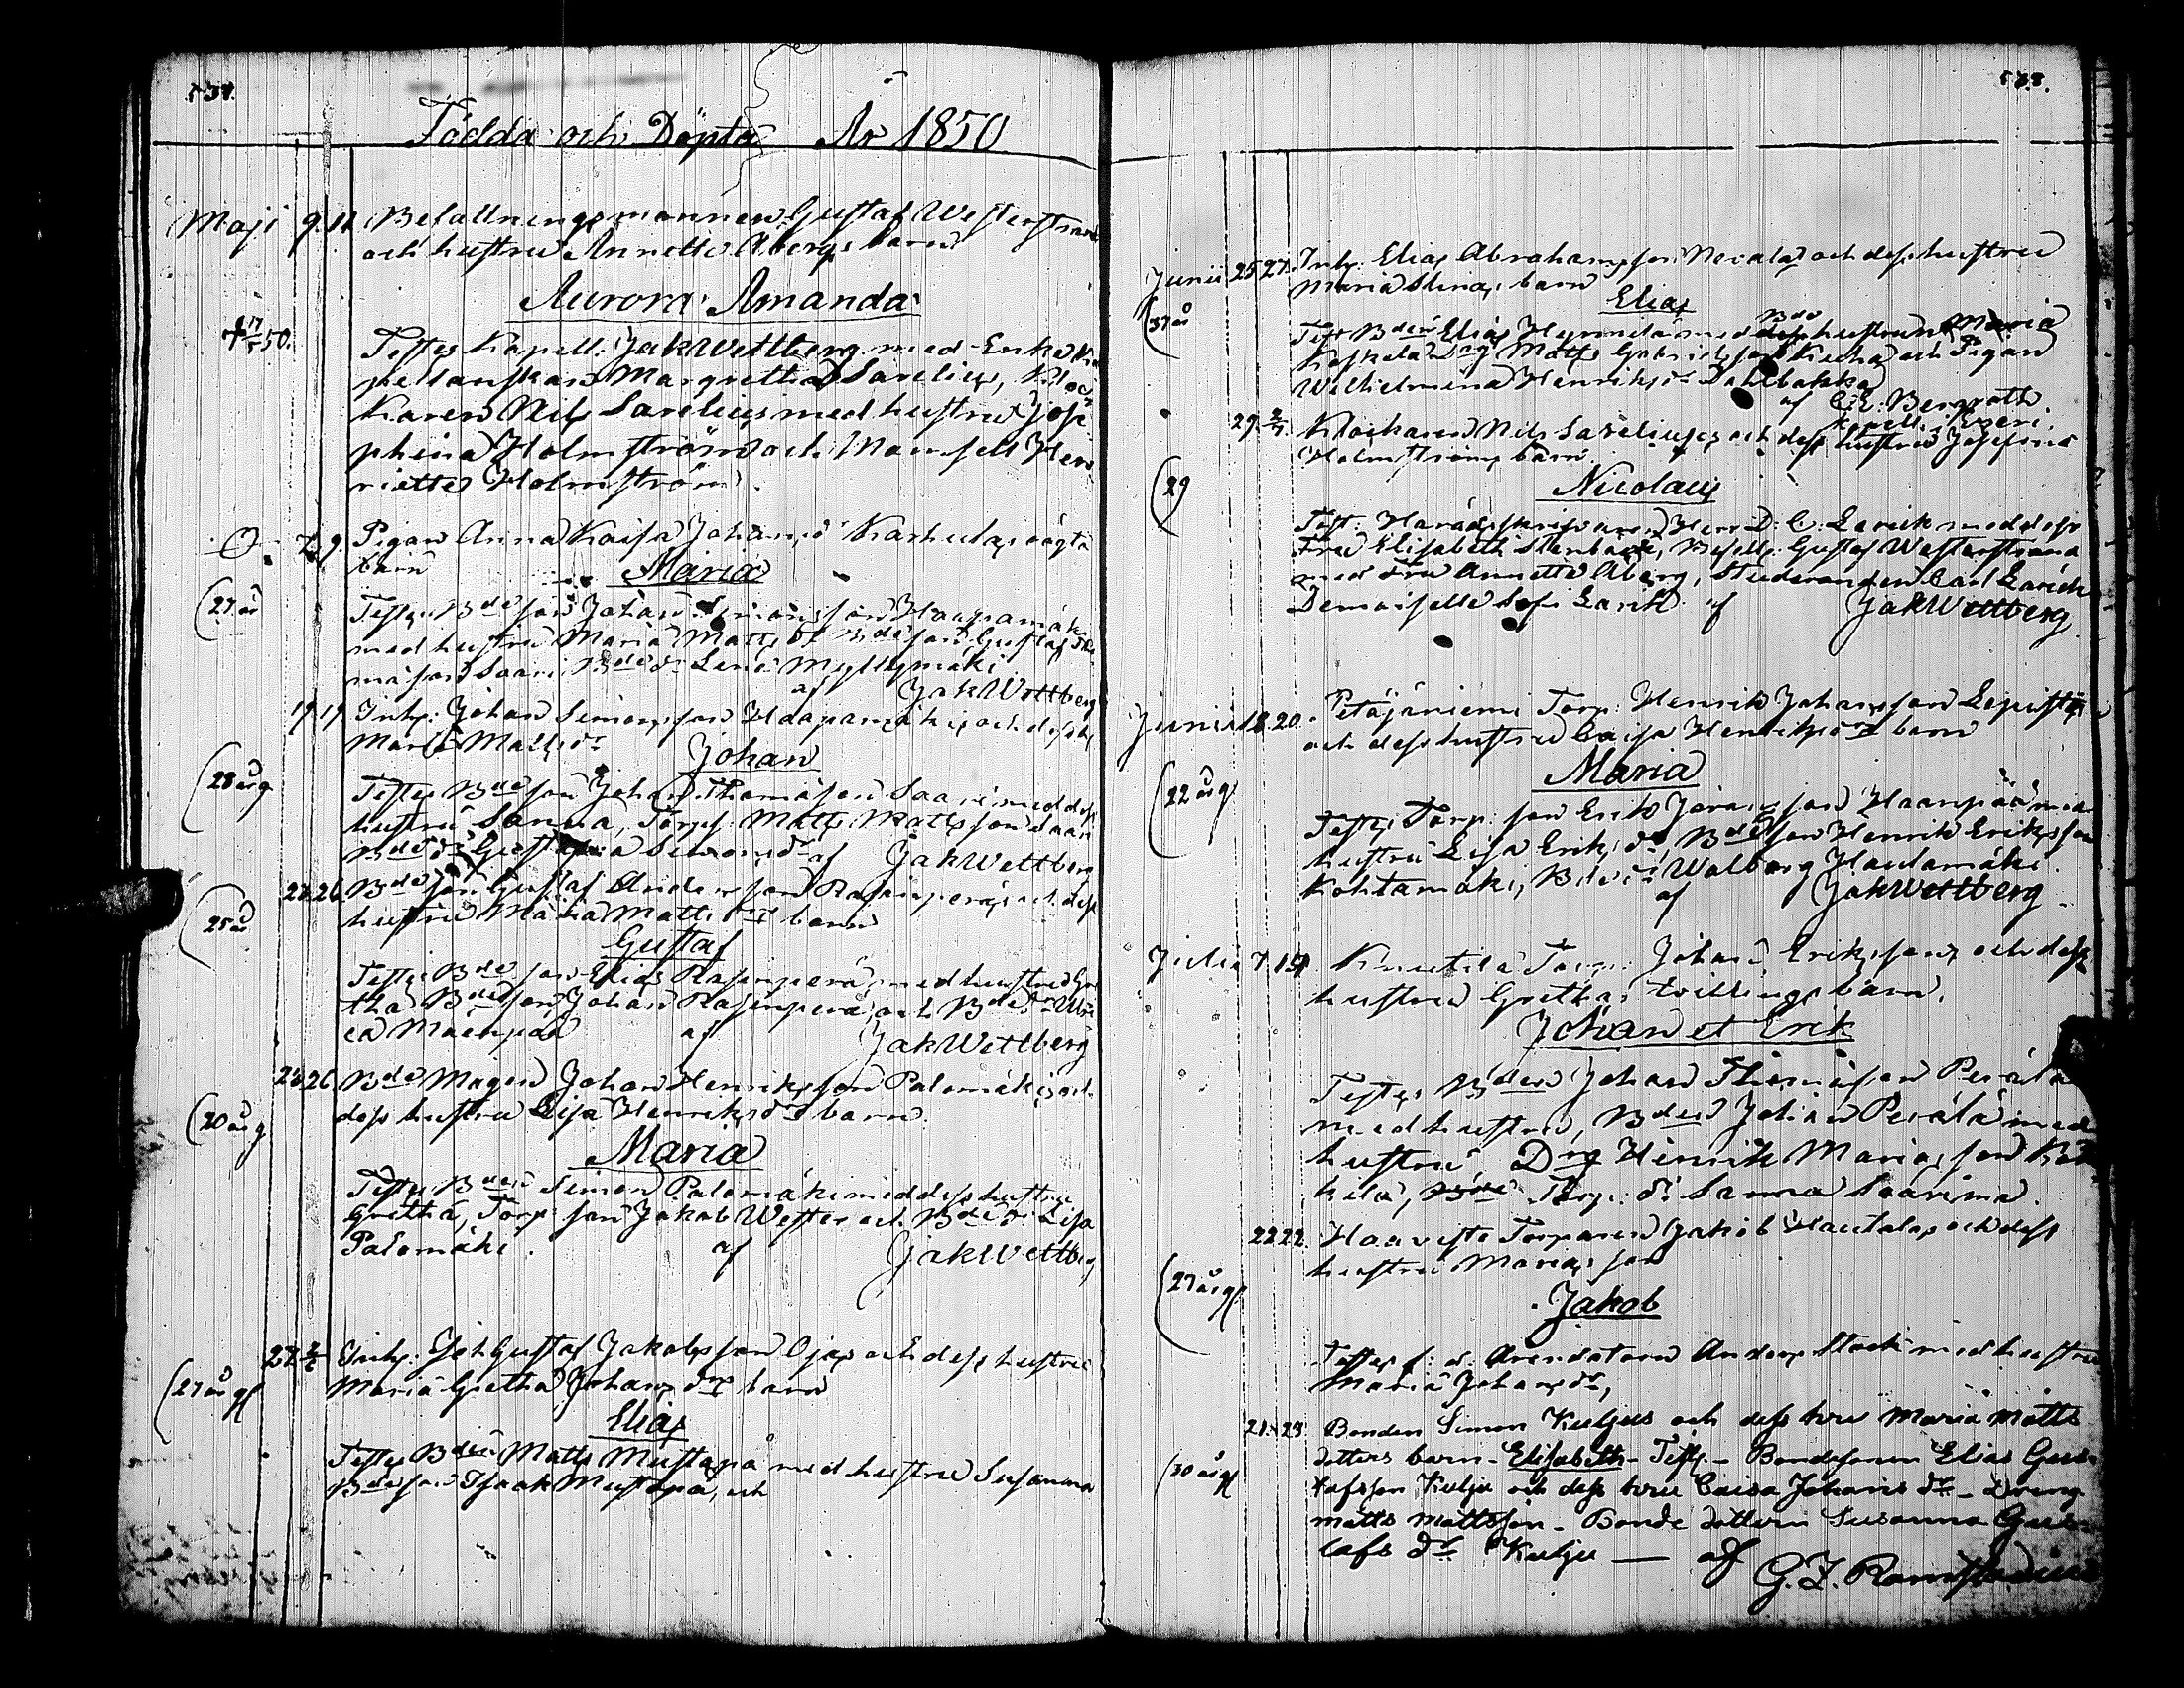 Födda och Döpta År 1850
Maji 9. 12 Befallningsmannen Gustaf Westerstrand
och hustru Annette Åbergs barn
Aurora Amanda
† 17/5 50.
Testes Kapell: Jak Wettberg med Enke Ka
pellanskan Margretha Sarelius, Kloc
karen Nils Sarelius med hustru Jose
phina Holmström och Mamsell Hen
riette Holmström.
7. 9. Pigan Anna Kaisa Johansdr Karhulas oägta
barn Maria
(27 år
Testes Bdeson Johan Simonsson Haapamäki
med hustru Maria Mattsdr Bdeson Gustaf Tho
masson Saari Bdedr Lena Myllymäki
af Jak Wettberg
17 19 Inhs: Johan Simonsson Haapamäkis och dess h
Maria Mattsdr Johan
(28 årg
Testes Bdeson Johan Thomasson Saari med dess
hustru Sanna, Torps: Matts Mattsson Saari
Bdedr Gustava Simonsdr af Jak Wettberg
26 Bdeson Gustaf Andersson Rasinperäs och dess
hustru Maria Mattsdrs barn
(25 år
Gustaf
Testes Bdeson Elias Rasinperä med hustru Gre
tha Bdeson Johan Rasinperä, och Bdedr Ulri
ca Maenpää af Jak Wettberg
26 Bde Mågen Johan Henriksson Palomäkis och
dess hustru Lisa Henriksdrs barn.
(20 årg
Maria
Testes Bden Simon Palomäki med dess hustru
Gretha, Torp: son Jakob Wester och Bdedr Lisa
Palomäki. af Jak Wettberg
27. 2/6 Inhs: Joh Gustaf Jakobsson Ojas och dess hustru
Maria Gretha Johansdrs barn
(27 årg
Elias
Testes Bden Matts Mustapä med hustru Susanna
Bdeson Isaak Mustapä, och
Junii 25 27. Inhs: Elias Abrahamsson Nevala och dess hustru
Maria Stinas barn
(37 år
Elias
Test Bden Elias Hynnilä med Bde hustrun Maria
Koskela Drg Matts Gabrielsson Kucha och Pigan
Wilhelmina Henriksdr Dahlbakka
af G.E. Bergroth
kapell. i Evers.
29. 2/7 Klockaren Nils Sareliuses och dess hustru Josefina
Holmströms barn
(29
Nicolaus
Test: Häradsskrifvaren Herr D. C. Larick med dess
Fru Elisabeth Stenbäck, Befallg: Gustaf Westerstrand
med Fru Annette Åberg, Studeranden Carl Larick
Demoiselle Sofi Larick af Jak Wettberg
Junii 18 20. Petäjäniemi Torp: Henrik Johansson Lepistös
och dess hustru Caisa Henriksdrs barn
Maria
(22 årg
Testes Torp: son Erik Jöransson Haanpää med
hustru Lisa Eriksdr, Bdeson Henrik Eriksson
Kohtamäki, Bdedr Walborg Hautamäki.
af Jak Wettberg
Julii 7. 14 Knutila Torp: Johan Erikssons och dess
hustru Grethas tvillingsbarn.
Johan et Erik
Testes Bden Johan Thomasson Perälä
med hustru, Bden Johan Perälä med
hustru, Drg Henrik Mariasson
kila, Torp: dr Sanna Saarima
22 22. Haavisto Torparen Jakob Hautalas och dess
hustru Marias son
(27 årg
Jakob
Testes f: d: Arendatorn Anders Stock med hustru
Maria Johansdr,
21. 23 Bonden Simon Kuljus och dess hru Maria Matts
dotters barn - Elisabeth - Test. - Bondesonen Elias Gus
tafsson Kulju och dess hru Caisa Johans dr - Dreng
Matts Mattsson - Bonde dottern Susanna Gus
(30 årg
tafs dr Kulju — af
G. Z. Ramstadius